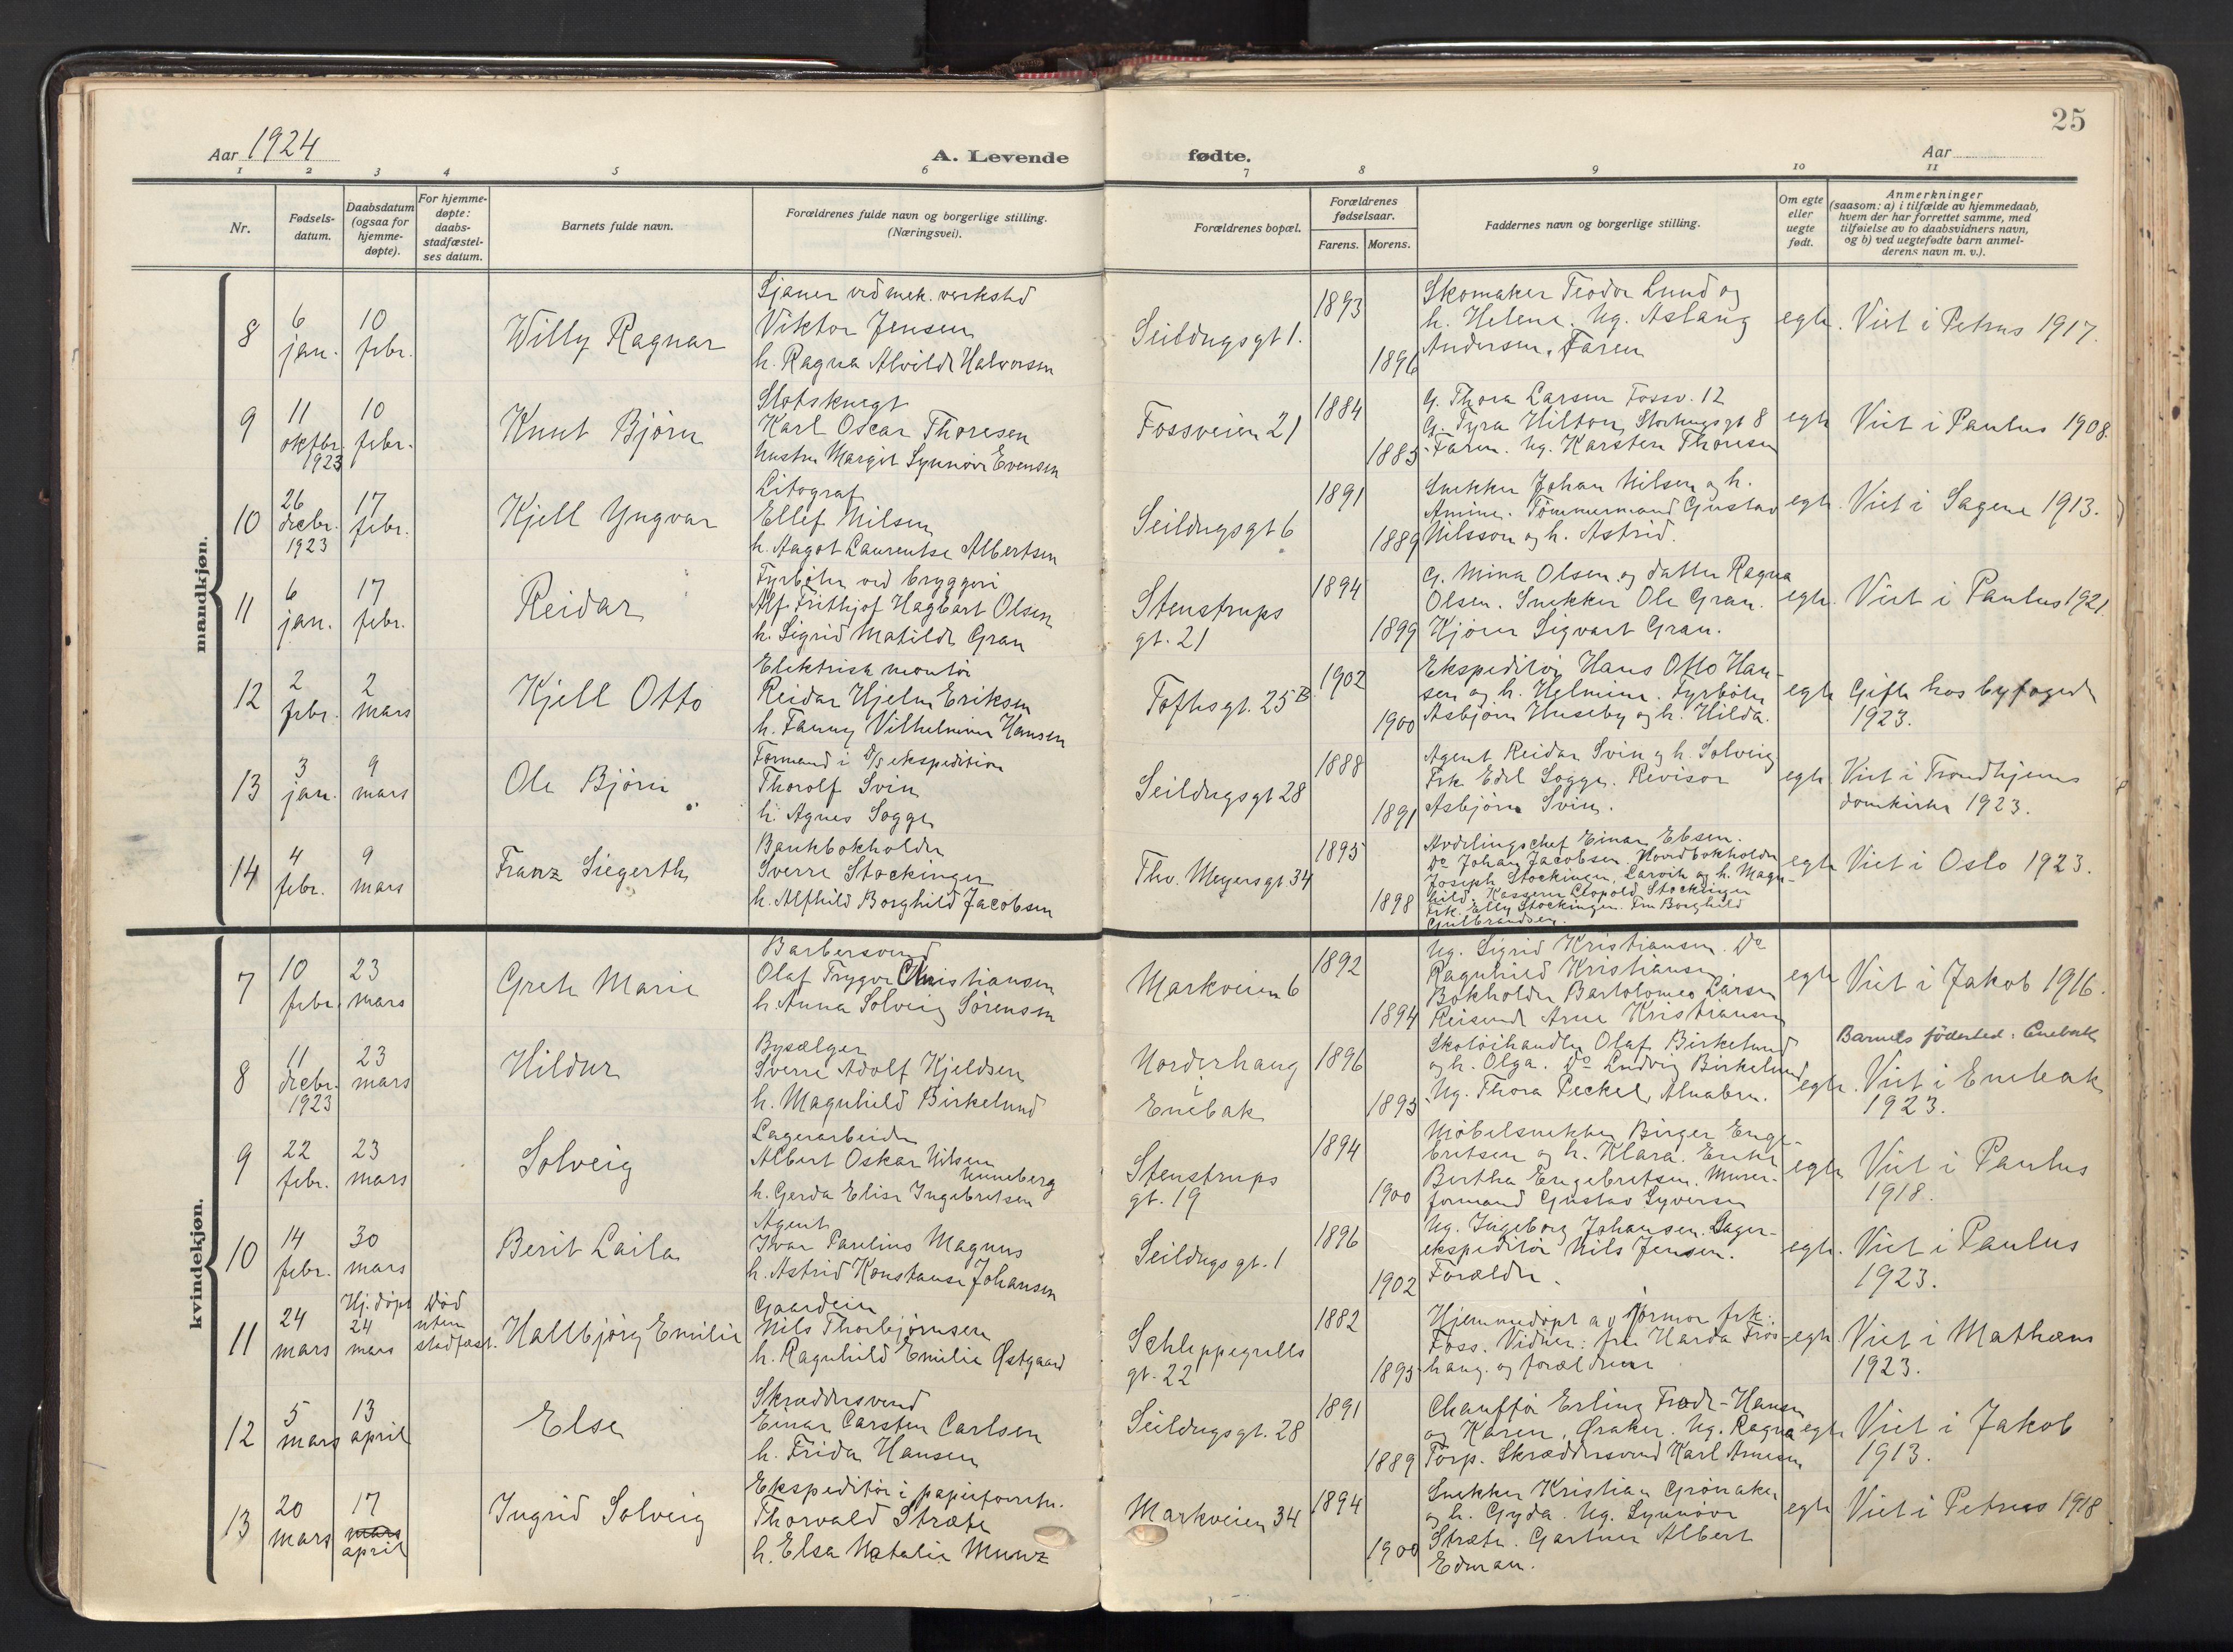 25
Aar 1924
A. Levende
fødte.
Aar
1 2 3 4 5 6 7 8 9 10 11
Nr.
Fødsels-
datum.
Daabsdatum
(ogsaa for
hjemme-
døpte).
For hjemme-
døpte:
daabs-
stadfæstel-
ses datum.
Barnets fulde navn.
Forældrenes fulde navn og borgerlige stilling.
(Næringsvei).
Forældrenes bopæl.
Forældrenes
fødselsaar.
Farens. Morens.
Faddernes navn og borgerlige stilling.
Om egte
eller
uegte
født.
Anmerkninger
(saasom: a) i tilfælde av hjemmedaab,
hvem der har forrettet samme, med
tilføielse av to daabsvidners navn,
og b) ved uegtefødte barn anmel-
derens navn m. v.).
mandkjøn.
8
6
jan.
10
febr.
Willy Ragnar
Sjauer ved mek. verksted
Viktor Jensen
h. Ragna Alvilde Halvorsen
Seildugsgt 1.
1893
1896
Skomaker Teodor Lund og
h. Helene. Ug. Aslaug
Andersen. Faren
egte.
Viet i Petrus 1917.
9
11
oktbr.
1923
10
febr.
Knut Bjørn
Slotsknegt
Karl Oscar Thoresen
hustru Margit Synnøve Evensen
Fossveien 21
1884
1885
G. Thora Larsen Fossv. 12
G. Fyra Hilton, Stortingsgt 8
Faren. Ug. Karsten Thoresen
egte
Viet i Paulus 1908.
10
26
decbr.
1923
17
febr.
Kjell Yngvar
Litograf
Ellef Nilsen
h. Aagot Laurentse Albertsen
Seildugsgt 6
1891
1889
Snekker Johan Nilsen og h.
Amine. Tømmermand Gustav
Nilsson og h. Astrid.
egte.
Viet i Sagene 1913.
11
6
jan.
17
febr.
Reidar
Fyrbøter ved bryggeri
Alf Frithjof Hagbart Olsen
h. Sigrid Matilde Gran
Stenstrups
gt. 21
1894
1899
G. Mina Olsen og datter Ragna
Olsen. Snekker Ole Gran.
Kjører Sigvart Gran.
egte.
Viet i Paulus 1921
12
2
febr.
2
mars
Kjell Otto
Elektrisk montør
Reidar Hjelm Eriksen
h. Fanny Vilhelmine Hansen
Toftesgt. 25 B.
1902
1900
Ekspeditør Hans Otto Han-
sen og h. Helmine. Fyrbøter
Asbjørn Huseby og h. Hilda.
egte
Gifte hos byfoged
1923.
13
3
jan.
9
mars
Ole Bjørn
Formand i D/S ekspedition
Thorolf Svin
h. Agnes Sogge
Seildugsgt 28
1888
1891
Agent Reidar Svin og h. Solveig
Frk Edel Sogge. Revisor
Asbjørn Svin.
egte.
Viet i Trondhjems
domkirke 1923.
14
4
febr.
9
mars
Franz Siegerth
Bankbokholder
Sverre Stockinger
h. Alfhild Borghild Jacobsen
Thv. Meyersgt 34
1895
1898
Avdelingschef Einar Ebsen.
Do Johan Jacobsen. Hovedbokholder
Joseph Stockinger, Larvik og h. Magn-
hild. Kasserer Leopold Stockinger
Frk. Elly Stockinger. Fru Borghild
Gulbrandsen.
egte
Viet i Oslo 1923.
kvindekjøn.
7
10
febr.
23
mars
Grete Marie
Barbersvend
Olaf Trygve Christiansen
h. Anna Solveig Sørensen
Markveien 6
1892
1894
Ug. Sigrid Kristiansen. Do
Ragnhild Kristiansen
Bokholder Bartolomeo Larsen
Reisende Arne Kristiansen
egte
Viet i Jakob 1916.
8
11
decbr.
1923
23
mars
Hildur
Bysælger
Sverre Adolf Kjeldsen
h. Magnhild Birkelund
Norderhaug
i
Enebak
1896
1895
Skotøihandler Olaf Birkelund
og h. Olga. Do Ludvig Birkelund
Ug. Thora Peckel, Alnabru.
egte.
Barnets fødested: Enebak
Viet i Enebak
1923.
9
22
febr.
23
mars
Solveig
Lagerarbeider
Albert Oskar Nilsen
Unneberg
h. Gerda Elise Ingebretsen
Stenstrups
gt. 19
1894
1900
Møbelsnekker Birger Enge-
bretsen og h. Klara. Enke
Bertha Engebretsen. Murer-
formand Gustav Syversen
egte
Viet i Paulus
1918.
10
14
febr.
30
mars
Berit Laila
Agent
Ivar Paulius Magnus
h. Astrid Konstanse Johansen
Seildugsgt. 1
1896
1902
Ug. Ingeborg Johansen. Lager-
ekspeditør Nils Jensen.
Forældre.
egte.
Viet i Paulus
1923.
11
24
mars
Hj. døpt
24
mars
Død
uten
stadfæst.
Hallbjørg Emilie
Gaardeier
Nils Thorbjørnsen
h. Ragnhild Emilie Østgaard
Schleppegrells
gt. 22
1882
1895
Hjemmedøpt av jormor frk.
Foss. Vidner: fru Harda Fros-
haug. og forældrene
egte.
Viet i Mathæus
1923.
12
5
mars
13
april
Else
Skræddersvend
Einar Carsten Carlsen
h. Frida Hansen
Seildugsgt. 28
1891
1889
Chauffør Erling Frode-Hansen
og Karen, Øraker. Ug. Ragna
Torp. Skræddersvend Karl Arnesen
egte
Viet i Jakob
1913.
13
20
mars
17
mars
april
Ingrid Solveig
Ekspeditør i papirforretn.
Thorvald Stræte
h. Elsa Natalie Munz
Markveien 34
1894
1900
Snekker Kristian Grønaker
og h. Gyda. Ug. Synnøve
Stræte. Gartner Albert
Edman.
egte
Viet i Petrus 1918